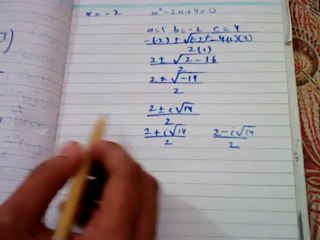 x = -2 x² - 2x + 4 = 0
a = 1 b = -2 c = 4
-(-2) ± √(-2)² - 4(1)(4)
2(1)
2 ± √2 - 16
2
2 ± √-14
2
2 ± i√14
2
2 + i√14 2 - i√14
2 2